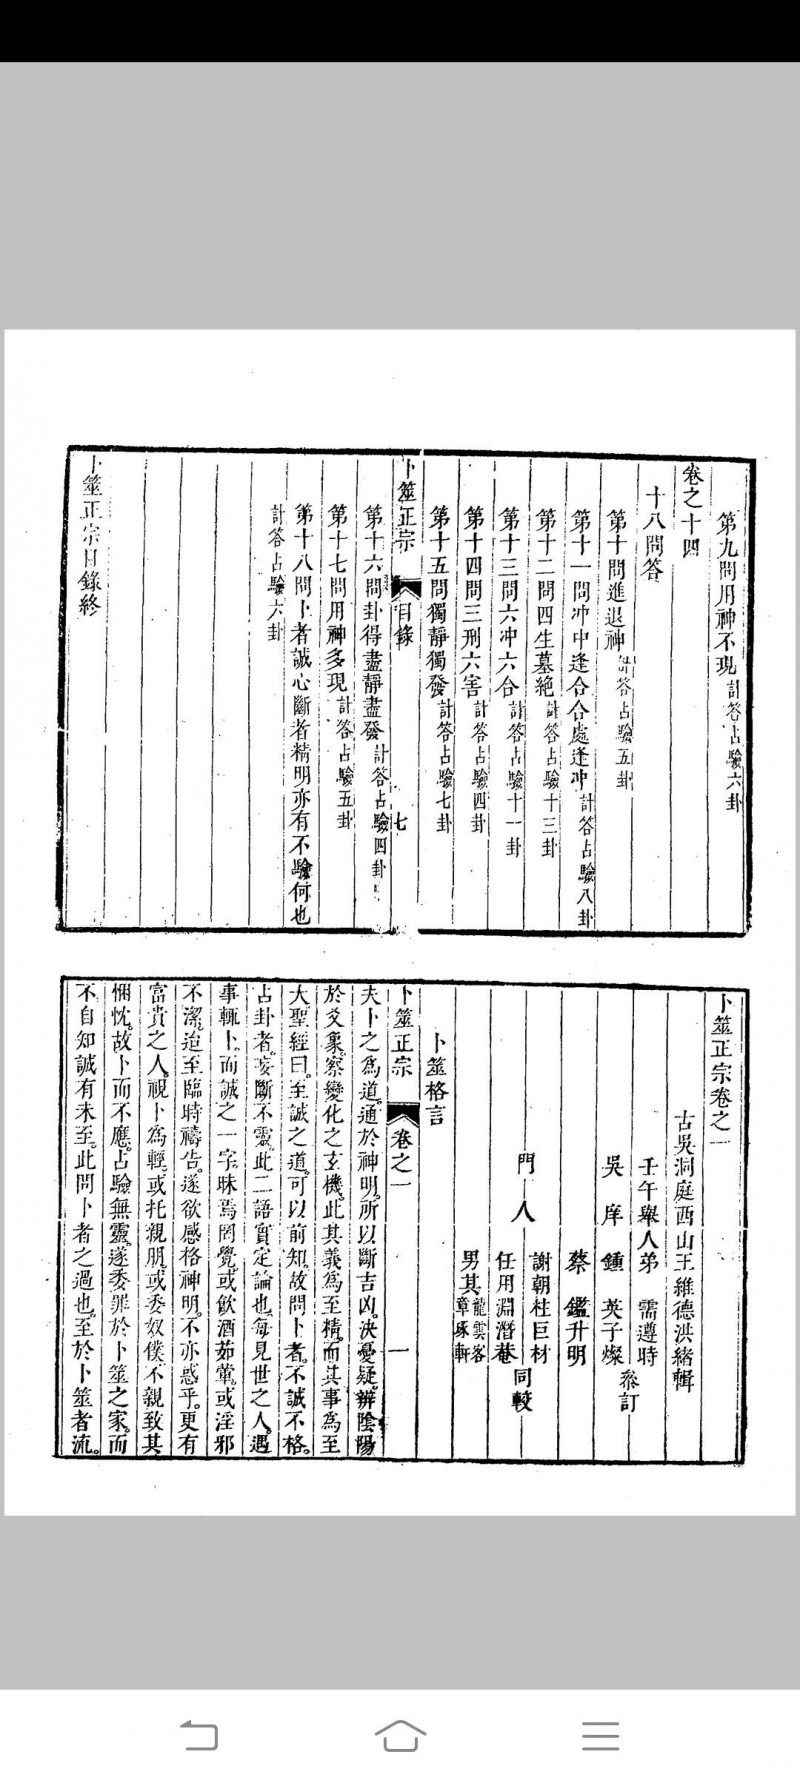 第九問用神不現計答占驗六卦
卷之十四
十八問答
第十問進退神計答占驗五卦
第十一問冲中逢合合處逢冲計答占驗八卦
第十二問四生墓絶計答占驗十三卦
第十三問六冲六合計答占驗十一卦
第十四問三刑六害計答占驗四卦
第十五問獨靜獨發計答占驗七卦
卜筮正宗 目錄 七
第十六問卦得盡靜盡發計答占驗四卦
第十七問用神多現計答占驗五卦
第十八問卜者誠心斷者精明亦有不驗何也
計答占驗六卦
卜筮正宗目錄終
卜筮正宗卷之一
古吳洞庭西山王維德洪緒輯
壬午舉人弟 需遵時
吳庠 鍾 英子燦 叅訂
蔡 鑑升明
門人 謝朝柱巨材
任用淵潛菴 同較
男其龍雲客
章琢軒
卜筮格言
卜筮正宗 卷之一 一
夫卜之為道。通於神明。所以斷吉凶。決憂疑。辨陰陽
於爻象。察變化之玄機。此其義為至精。而其事為至
大。聖經曰。至誠之道。可以前知。故問卜者。不誠不格。
占卦者。妄斷不靈。此二語實定論也。每見世之人。遇
事輒卜。而誠之一字。昧焉罔覺。或飲酒茹葷。或淫邪
不潔。迨至臨時禱告。遂欲感格神明。不亦惑乎。更有
富貴之人。視卜為輕。或托親朋。或委奴僕。不親致其
悃忱。故卜而不應。占驗無靈。遂委罪於卜筮之家。而
不自知誠有未至。此問卜者之過也。至於卜筮者流。